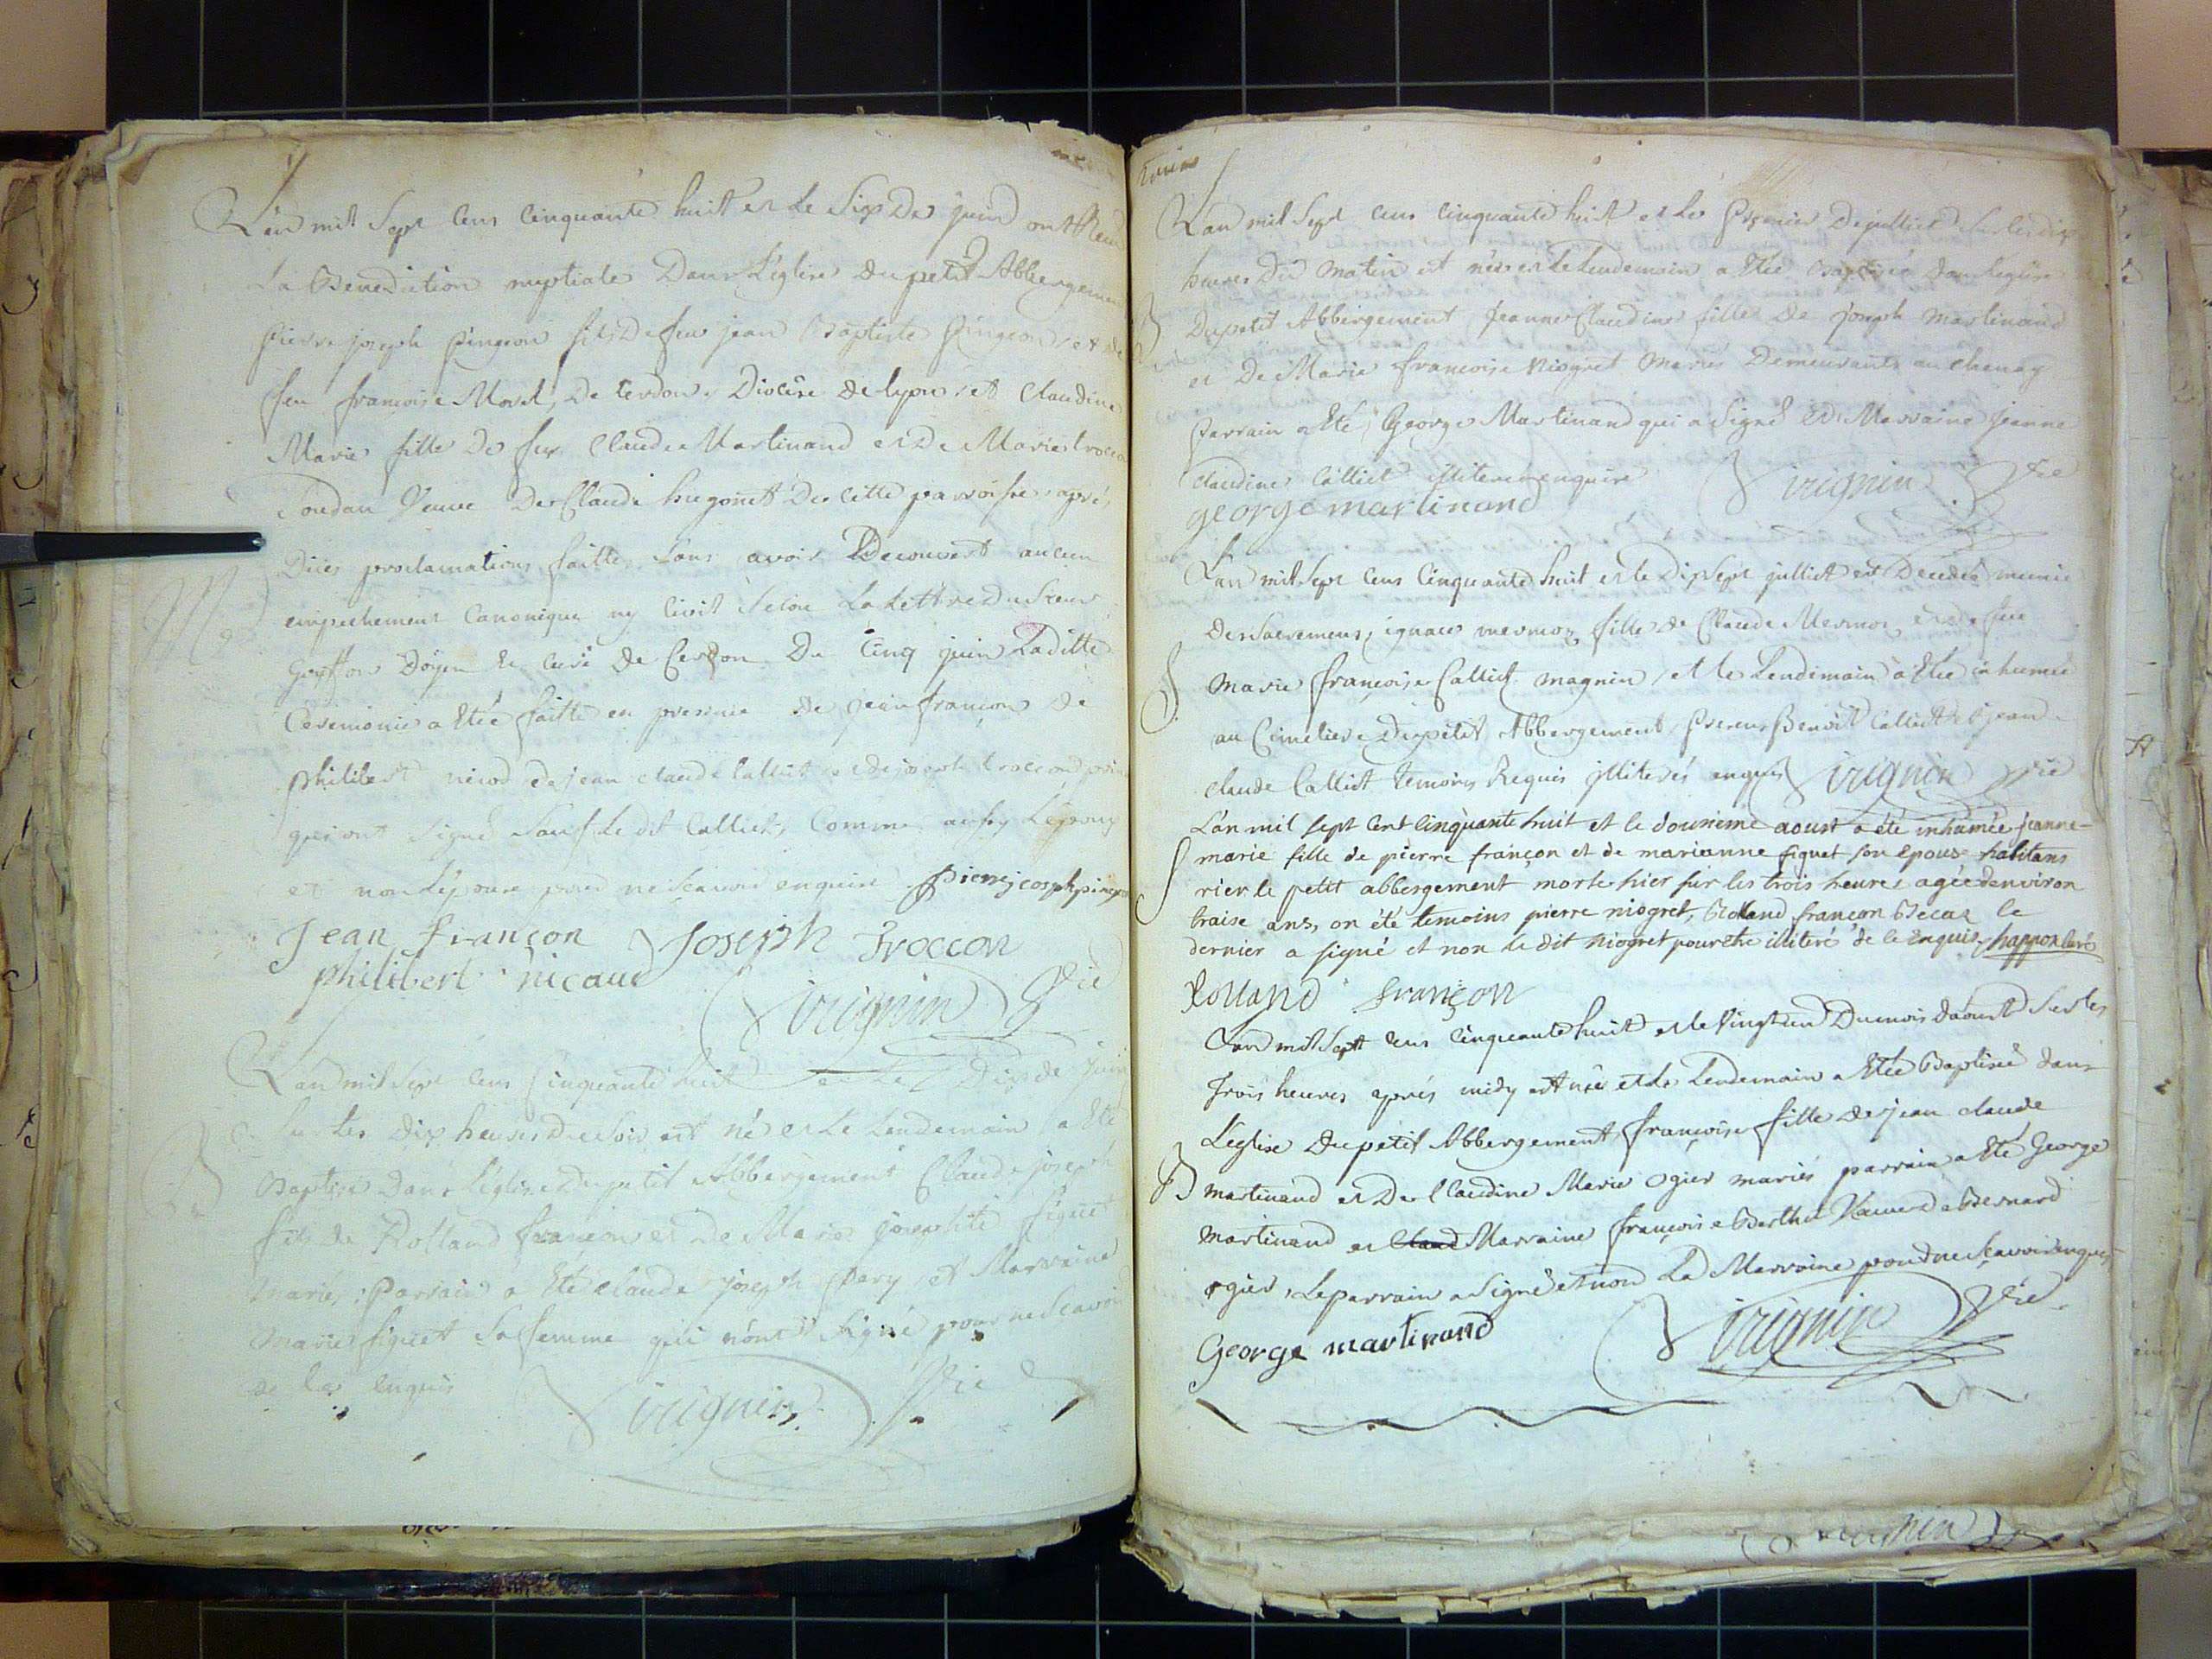 L'an mil Sept Cens Cinquante huit et le Six De juin ont Receu
La Benediction nuptiale Dans L'églize du petit Abbergement
pierre joseph pingeon fils De feu jean Baptiste pingeon et de
feu francoise Morel, De Cerdon, Diocèse de lyon, et Claudine
Marie fille De feu Claude Martinand et De Marie troccon
Veuve De Claude hugonet De cette parroisse, aprés
proclamations faittes sans avoir Decouvert aucun
empechement Canonique ny Civil Selon La Lettre du Sieur
Doyen et Curé De Cerdon Du Cinq juin Laditte
Ceremonie a Etée faitte en presence de jean françon De
philibert nicod de jean claude Calliet et de joseph troccon
qui ont Signé Sauf Le dit Calliet, Comme aussy L'epoux
et non L'épouse pour ne Scavoir enquise pierre joseph pingeon
Jean françon Joseph Troccon
philibert nicaud
Virignin Vic
L'an mil Sept Cens Cinquante huit et Le Dix de juin
Sur Les Dix heures Du Soir est né et Le Lendemain a Eté
Baptisé Dans L'églize Du petit Abbergement Claude joseph
fils de Rolland françon et De Marie josephte figuet
Mariés: Parrain a Eté Claude joseph Pary et Marraine
Marie figuet Sa femme qui n'ont Signé pour ne Scavoir
de les enquis
Virignin Vic
L'an mil Sept Cens Cinquante huit et Le Premier De julliet Sur Les dix
heures Du Matin est née et Le Lendemain a Etée Baptisée dans L'eglise
B
Du petit Abbergement Jeanne Claudine fille De joseph Martinand
et De Marie francoise Niogret Mariés Demeurants au Chenay
Parrain a Eté George Martinand qui a Signé et Marraine Jeanne
Claudine Calliet illiterée enquise Virignin Vic
george martinand
L'an mil Sept Cens Cinquante huit et le Dix Sept julliet est Decedée munie
Des Sacremens, ignace mermoz fille de Claude Mermoz et de feu
S
Marie françoise Calliet magnin, et le Lendemain a Etée inhumée
au Cimetiere Du petit Abbergement, Presens Benoit Calliet et jean
claude Calliet temoins Requis illiterés enquis Virignin Vic
L'an mil sept Cent Cinquante huit et le douzieme aoust a été inhumée jeanne-
S
marie fille de pierre françon et de marianne figuet son epouse habitans
rier le petit abbergement morte hier sur les trois heures agée denviron
traise ans, on été temoins pierre niogret, Rolland françon Becar le
dernier a signé et non le dit niogret pour etre illiteré de le Enquis, happon curé
Rolland françon
L'an mil Sept Cens Cinquante huit et le Vingt un Du mois d'aoust Sur les
Trois heures aprés midy est née et Le Lendemain a Etée Baptisée dans
L'églize Du petit Abbergement, françoise fille De jean claude
B
Martinand et De Claudine Marie Ogier mariés parrain a Eté George
Martinand et Marraine françoise Berthet Veuve De Bernard
ogier, Le parrain a Signé et non La Marraine pour ne Scavoir enquise
George martinand Virignin Vic